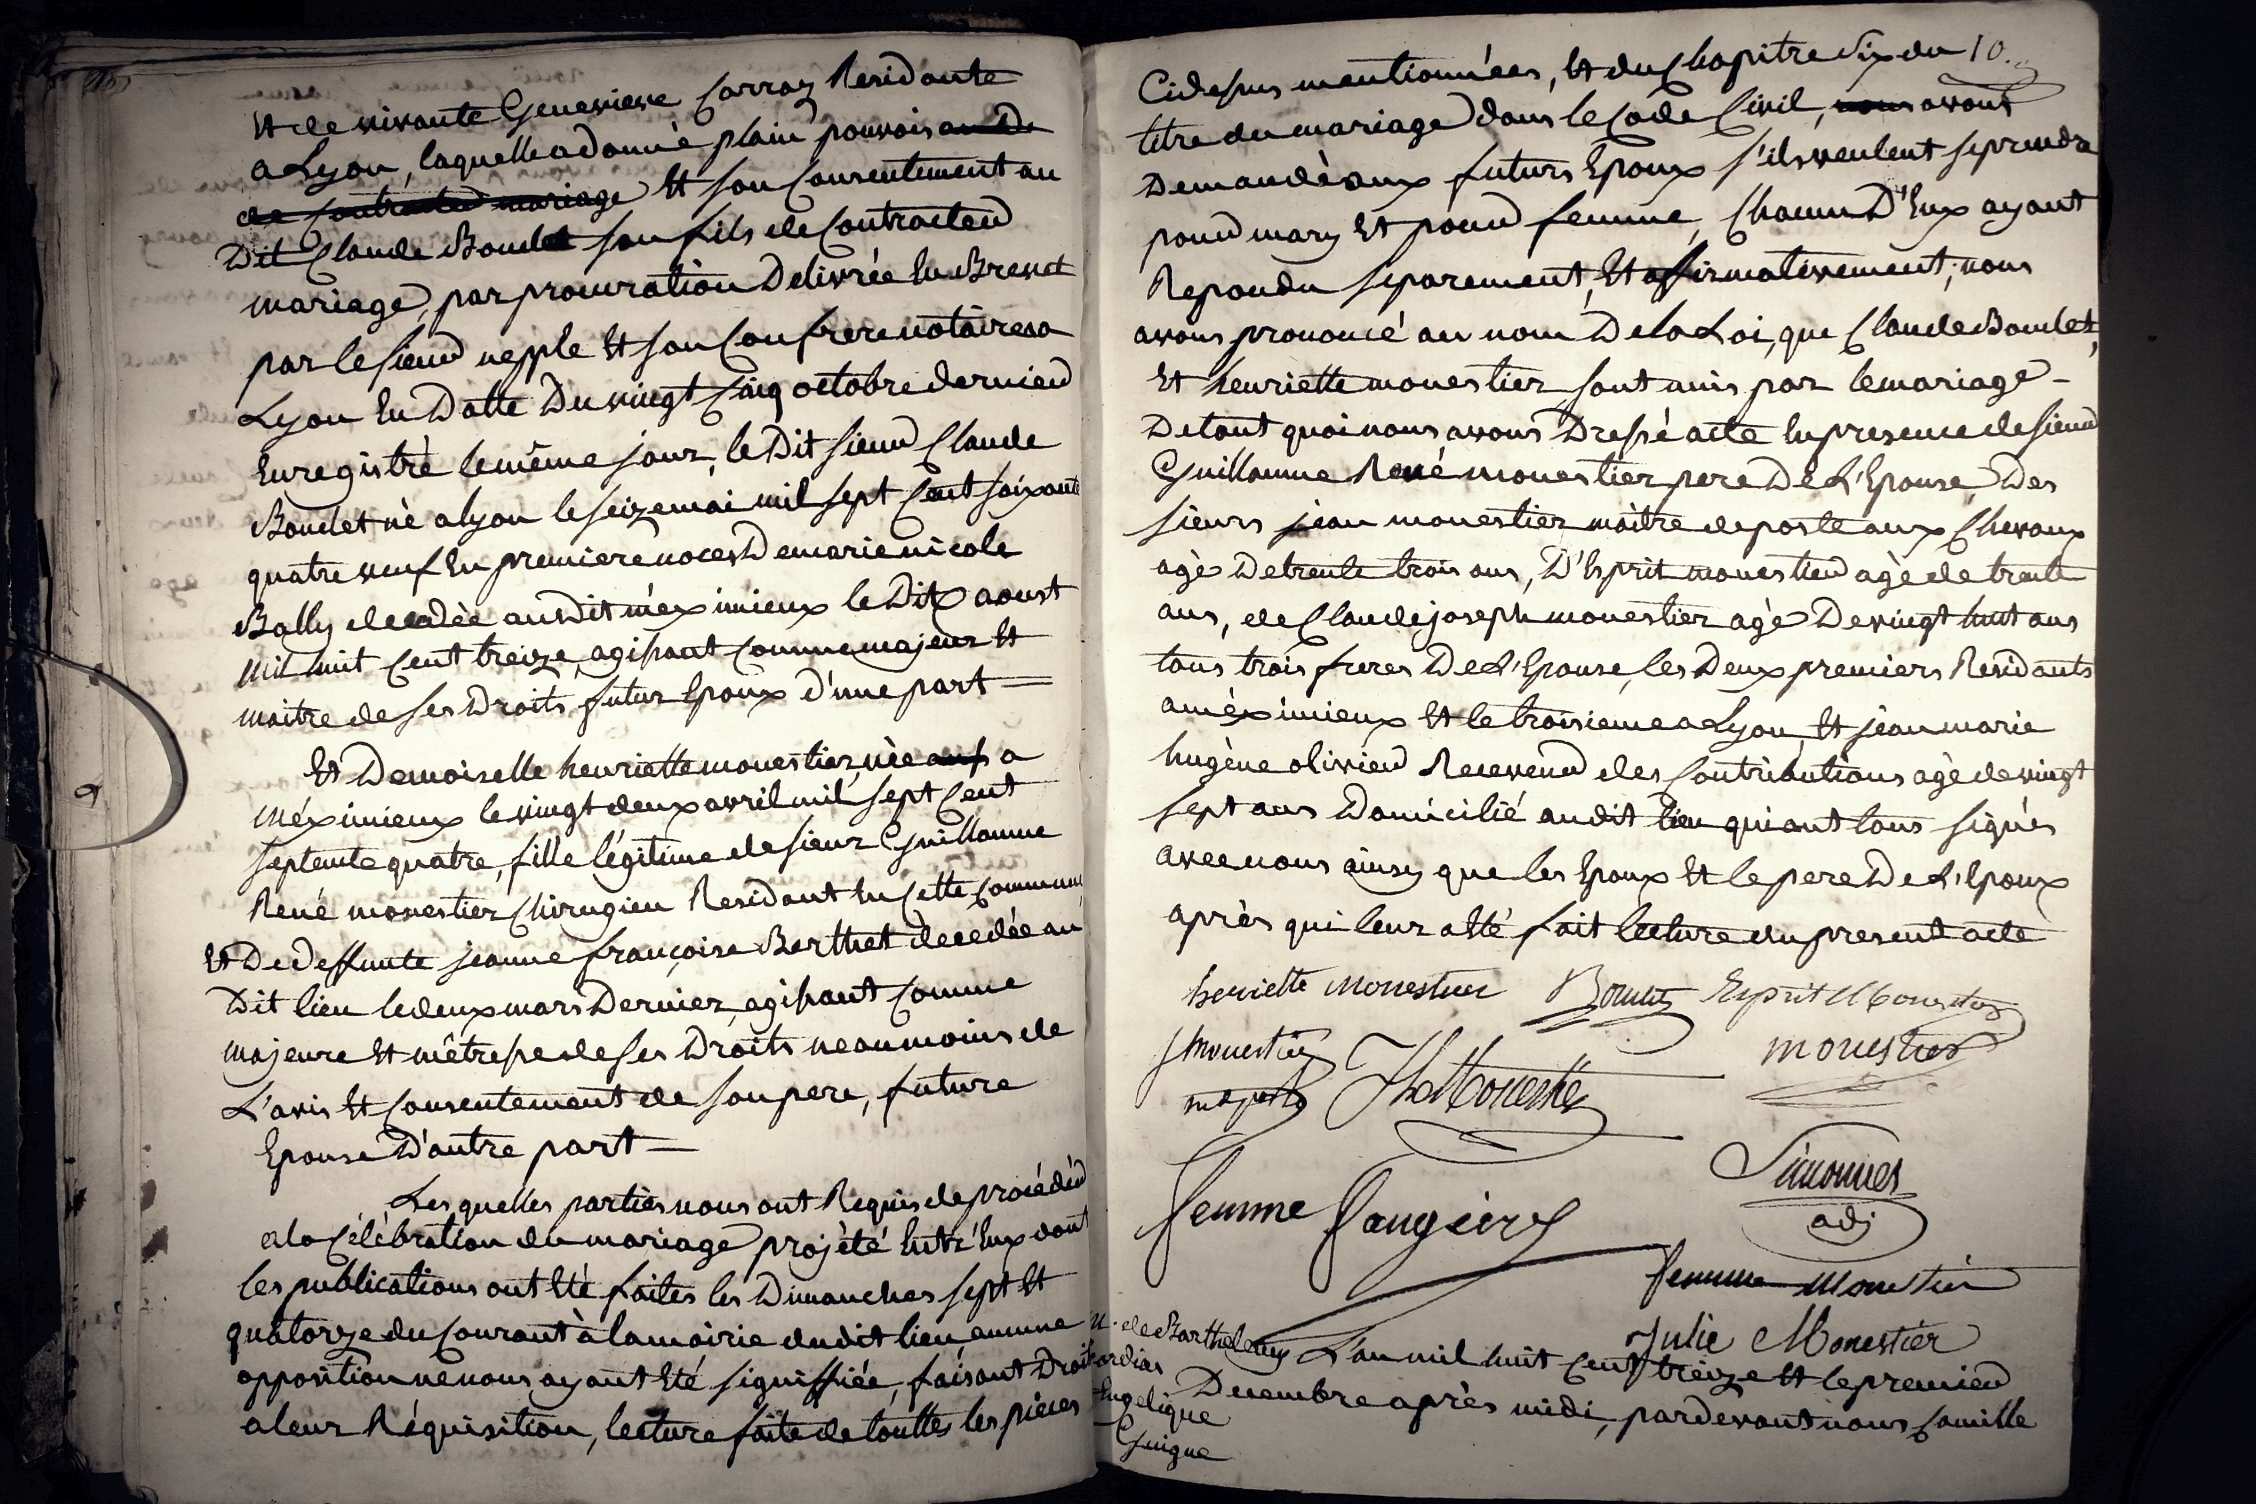 Et de vivante Genevieve Carraz Residante
a Lyon, laquelle a donné plain pouvoir au De
de contracter mariage Et son Consentement au
Dit Claude Boudet son fils de Contracter
mariage, par procuration Delivrée En Brevet
par le sieur nepple Et son Confrere notaires a
Lyon En Datte Du vingt Cinq octobre dernier
Enregistré le même jour, le Dit sieur Claude
Boudet né a lyon le seize mai mil sept Cent soixante
quatre veuf En premiere noces De marie nicole
Bally decedée au Dit méximieux le Dix aoust
mil huit Cent treize, agissant comme majeur Et
maitre de ses Droits futur Epoux d'une part
Et Demoiselle henriette monestier, née a
méximieux le vingt deux avril mil sept Cent
septente quatre, fille légitime de sieur Guillaume
René monestier Chirugien Residant En Cette Commune
Et De deffunte jeanne françoise Barthet decedée au
Dit lieu le deux mars Dernier, agissant Comme
majeure Et mêtresse de ses Droits neaumoins de
L'avis Et Consentement de son pere, future
Epouse D'autre part
Les quelles parties nous ont Requis de procédér
a la Célébration du mariage projèté Entr'Eux dont
les publications ont Eté faites les Dimanches sept Et
quatorze du Courant à la mairie du dit lieu, aucune
opposition ne nous ayant Eté signiffiée, faisant Droit
a leur Réquisition, lecture faite de touttes les pièces
10
Cidessus mentionnées, Et du Chapitre six du
titre du mariage dans le Code Civil, nous avons
Demandé aux futurs Epoux s'ils veulent se prendre
pour mary Et pour femme, Chacun D'Eux ayant
Repondu séparement, Et affirmativement; nous
avons prononcé au nom De la Loi, que Claude Boudet,
Et henriette monestier sont unis par le mariage
De tout quoi nous avons Dressé acte En presence de sieur
Guillaume René monestier pere De L'Epouse, Des
sieurs jean monestier maître de poste aux Chevaux
agé De trente trois ans, D'Esprit monestier agé de trente
ans, de Claude joseph monestier agé De vingt huit ans
tous trois freres De L'Epouse, les Deux premiers Residants
a méximieux Et le troisieme a Lyon, Et jean marie
hugène olivier Receveur des Contributions agé de vingt
sept ans Domicilié audit lieu qui ont tous signés
avec nous ainsy que les Epoux Et le pere De L'Epoux
après qui leur a Eté fait lecture du present acte
henriette Monestier Boudet Esprit Monestier
J monestier monestier
Monestier
Simonnet
adj
femme Faugiere
femme Monestier
Julie Monestier
de Barthelemy
L'an mil huit Cent treize Et le premier
Decembre après midi, pardevant nous Camille
Engelique
Guigue